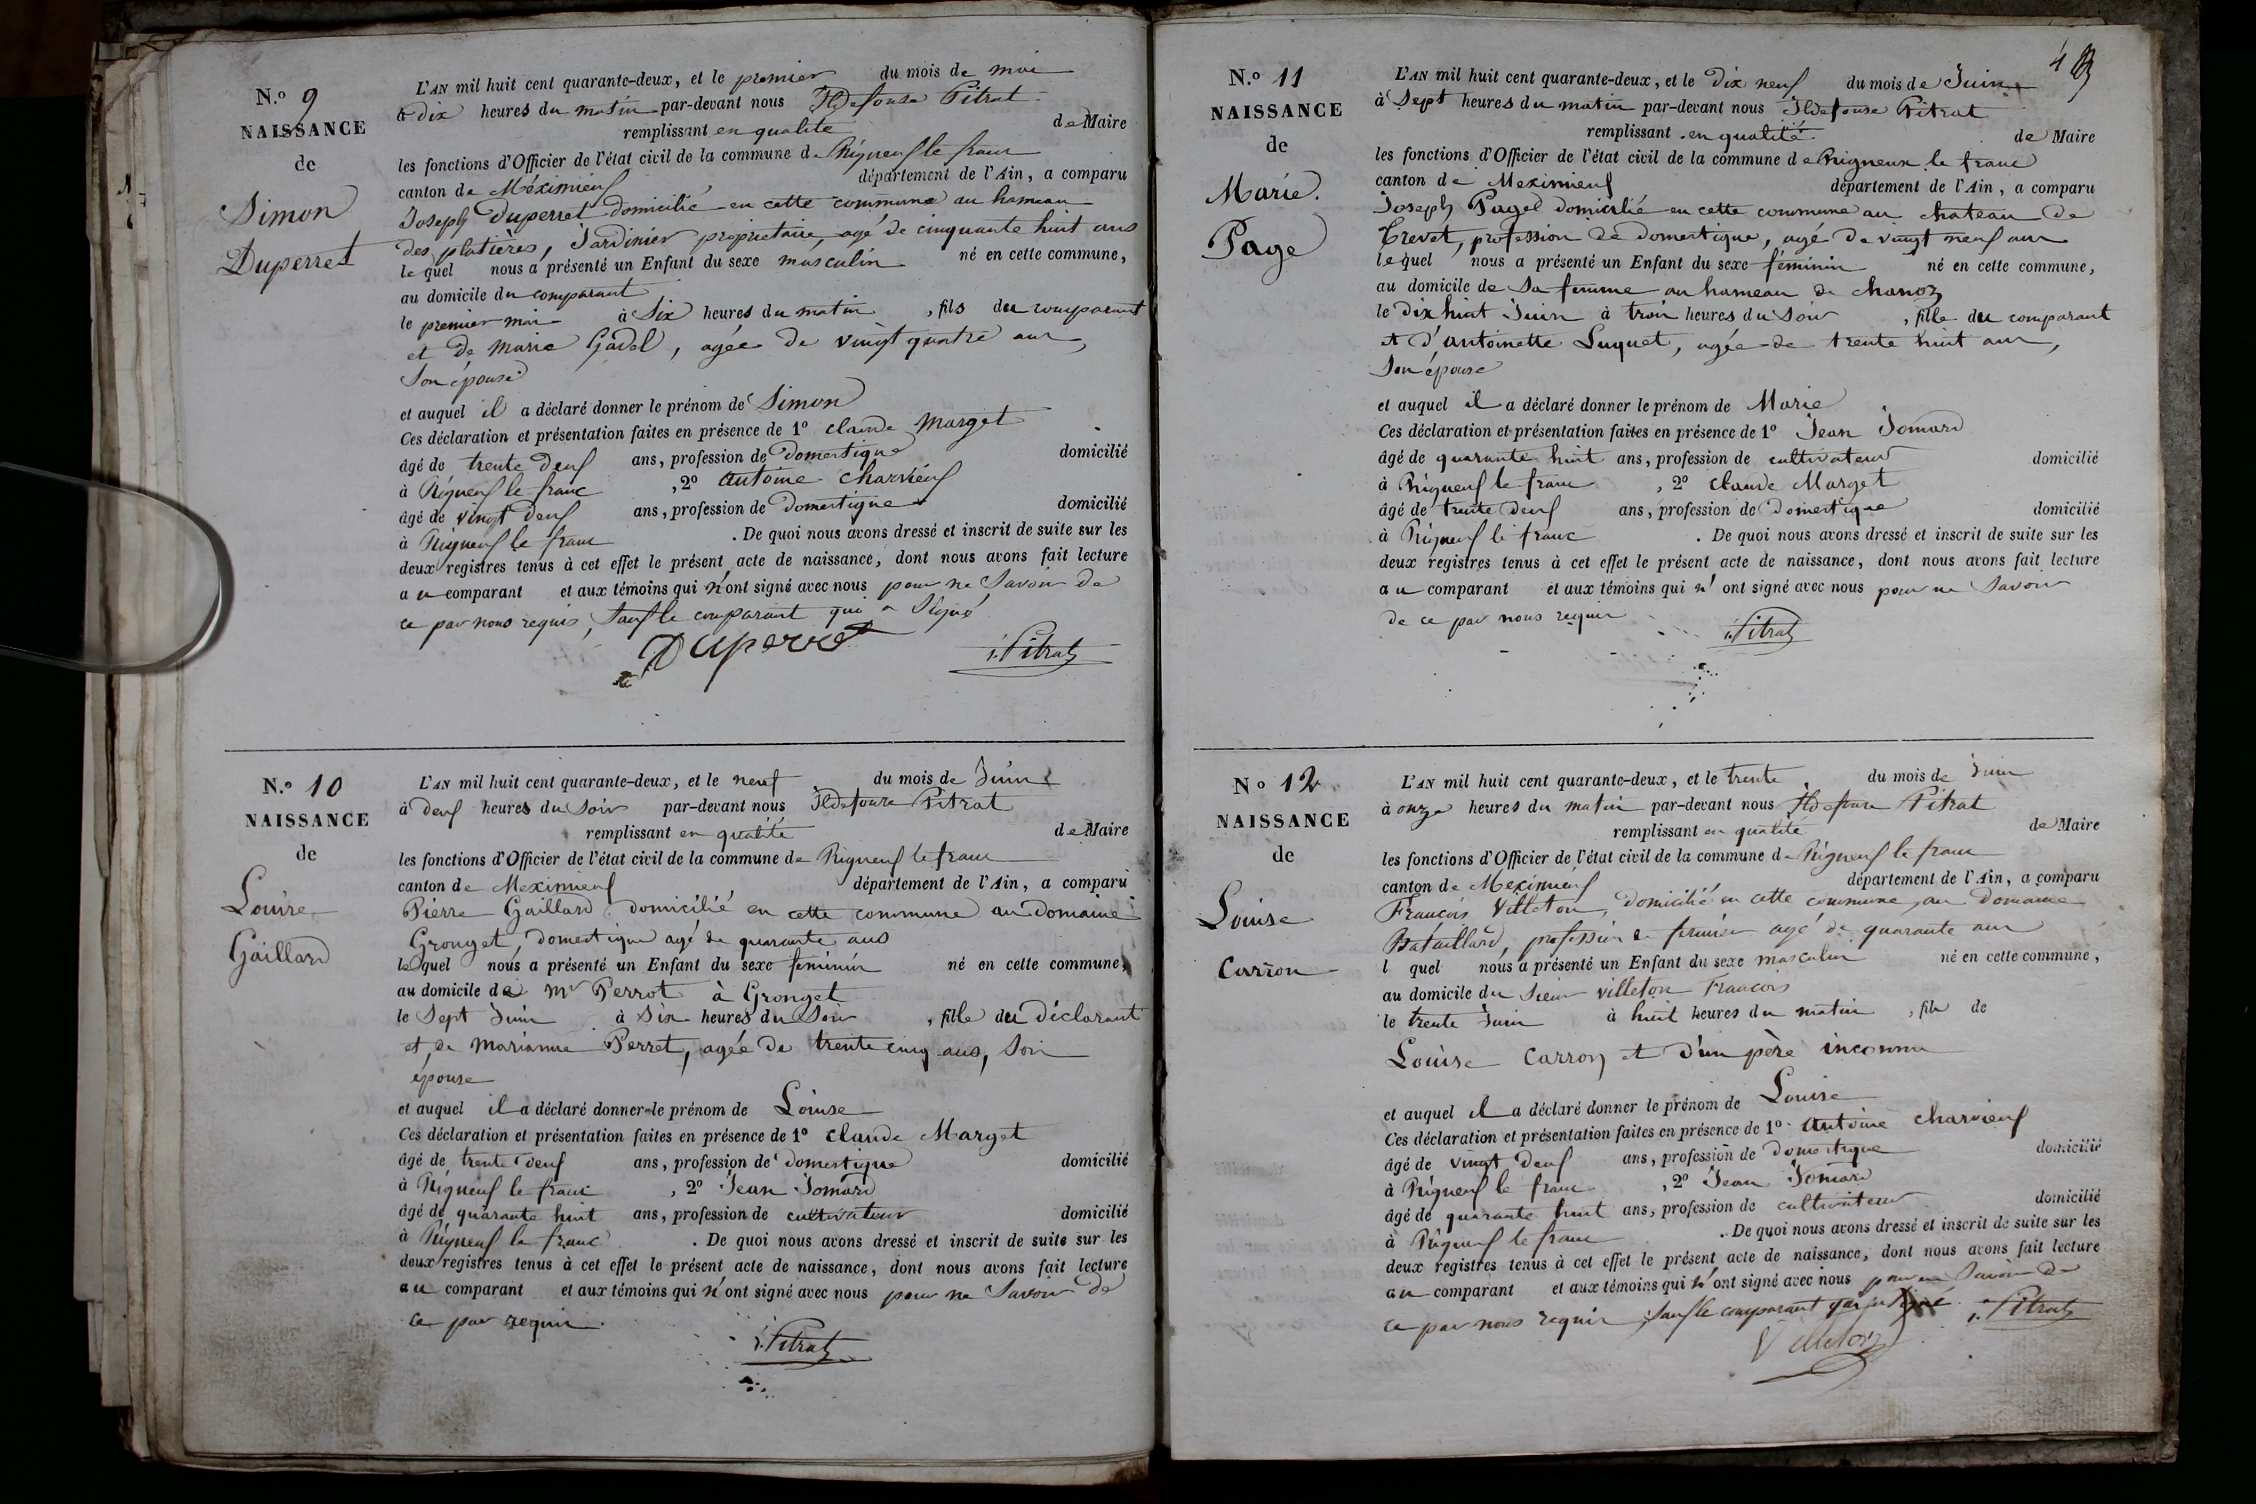 N.º 9
NAISSANCE
de
Simon
Duperret
L'AN mil huit cent quarante-deux, et le premier du mois de mai
à dix heures du matin par-devant nous Ildefonse Pitrat
remplissant en qualité de Maire
les fonctions d'Officier de l'état civil de la commune de Rigneuf le franc
canton de Méximieuf département de l'Ain, a comparu
Joseph Duperret domicilié en cette commune au hameau
des platières, Jardinier proprietaire, agé de cinquante huit ans
le quel nous a présenté un Enfant du sexe masculin né en cette commune,
au domicile du comparant
le premier mai à Six heures du matin, fils du comparant
et de marie Gadel, agée de vingt quatre ans,
Son épouse
et auquel il a déclaré donner le prénom de Simon
Ces déclaration et présentation faites en présence de 1º claude Marget
âgé de trente deuf ans, profession de Domestique domicilié
à Rigneuf le franc, 2º antoine charvieuf
âgé de vingt deuf ans, profession de Domestique domicilié
à Rigneuf le franc. De quoi nous avons dressé et inscrit de suite sur les
deux registres tenus à cet effet le présent acte de naissance, dont nous avons fait lecture
au comparant et aux témoins qui n'ont signé avec nous pour ne Savoir de
ce par nous requis, Sauf le comparant qui a Signé
Duperret
i. Pitrat
N.º 10
NAISSANCE
de
Louise
Gaillard
L'AN mil huit cent quarante-deux, et le neuf du mois de Juin
à deuf heures du Soir par-devant nous Ildefonse Pitrat
remplissant en qualité de Maire
les fonctions d'Officier de l'état civil de la commune de Rigneuf le franc
canton de Meximieuf département de l'Ain, a comparu
Pierre Gaillard domicilié en cette commune au Domaine
Gronget, Domestique agé de quarante ans
lequel nous a présenté un Enfant du sexe feminin né en cette commune,
au domicile de Mr Perrot à Gronget
le Sept Juin à Six heures du Soir, fille du déclarant
et de marianne Perret, agée de trente cinq ans, Son
épouse
et auquel il a déclaré donner le prénom de Louise
Ces déclaration et présentation faites en présence de 1º claude Marget
âgé de trente deuf ans, profession de domestique domicilié
à Rigneuf le franc, 2º Jean Jomard
âgé de quarante huit ans, profession de cultivateur domicilié
à Rigneuf le franc. De quoi nous avons dressé et inscrit de suite sur les
deux registres tenus à cet effet le présent acte de naissance, dont nous avons fait lecture
au comparant et aux témoins qui n'ont signé avec nous pour ne Savoir de
ce par requis.
i. Pitrat
N.º 11
NAISSANCE
de
Marie.
Page
L'AN mil huit cent quarante-deux, et le Dix neuf du mois de Juin
à Sept heures du matin par-devant nous Ildefonse Pitrat
remplissant en qualité de Maire
les fonctions d'Officier de l'état civil de la commune de Rigneux le franc
canton de Meximieuf département de l'Ain, a comparu
Joseph Paged domicilié en cette commune au chateau de
Trevet, profession de domestique, agé de vingt neuf ans
lequel nous a présenté un Enfant du sexe féminin né en cette commune,
au domicile de Sa femme au hameau de chanoz
le Dix huit Juin à trois heures du Soir, fille du comparant
et d'antoinette Luquet, agée de trente huit ans,
Son épouse
et auquel il a déclaré donner le prénom de Marie
Ces déclaration et présentation faites en présence de 1º Jean Jomard
âgé de quarante huit ans, profession de cultivateur domicilié
à Rigneuf le franc, 2º claude Marget
âgé de trente deuf ans, profession de Domestique domicilié
à Rigneuf le franc. De quoi nous avons dressé et inscrit de suite sur les
deux registres tenus à cet effet le présent acte de naissance, dont nous avons fait lecture
au comparant et aux témoins qui n'ont signé avec nous pour ne Savoir
de ce par nous requis
i. Pitrat
Nº 12
NAISSANCE
de
Louise
Carron
L'AN mil huit cent quarante-deux, et le trente du mois de Juin
à onze heures du matin par-devant nous Ildefonse Pitrat
remplissant en qualité de Maire
les fonctions d'Officier de l'état civil de la commune de Rigneuf le franc
canton de Meximieuf département de l'Ain, a comparu
François Villeton, domicilié en cette commune, au Domaine
Bataillard, profession de fermier agé de quarante ans
l quel nous a présenté un Enfant du sexe masculin né en cette commune,
au domicile du Sieur Villeton Francois
le trente Juin à huit heures du matin, fils de
Louise Carron et d'un père inconnu
et auquel il a déclaré donner le prénom de Louise
Ces déclaration et présentation faites en présence de 1º antoine charvieuf
âgé de vingt deuf ans, profession de domestique domicilié
à Rigneuf le franc, 2º Jean Jomard
âgé de quarante huit ans, profession de cultivateur domicilié
à Rigneuf le franc. De quoi nous avons dressé et inscrit de suite sur les
deux registres tenus à cet effet le présent acte de naissance, dont nous avons fait lecture
au comparant et aux témoins qui n'ont signé avec nous pour ne Savoir de
ce par nous requis, Sauf le comparant qui a Signé. i. Pitrat
Villeton